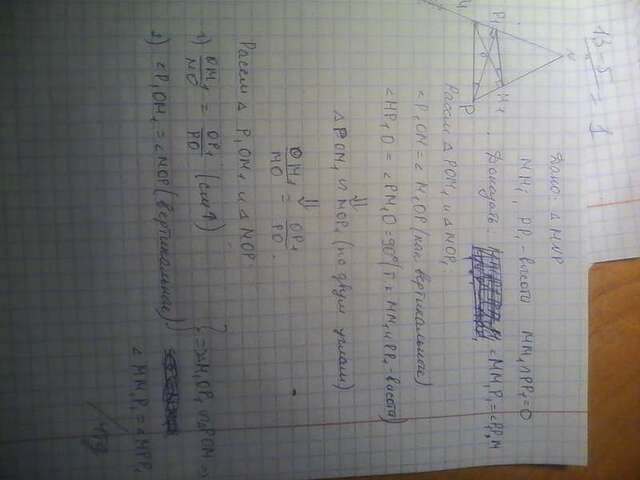 Дано: △ MNP
MM₁, PP₁ - высоты MM₁∩PP₁=O
Доказать: ∠MM₁P₁=∠PP₁M
Рассм △ POM₁ и △ MOP₁
∠P₁OM = ∠ M₁OP (как вертикальные)
∠MP₁O = ∠PM₁O = 90° (т.к MM₁ и PP₁ - высоты)
⇓
△ POM₁ ∾ MOP₁ (по двум углам)
⇓
OM₁/MO = OP₁/PO
Рассм △ P₁OM₁ и △ MOP
1) OM₁/MO = OP₁/PO
2) ∠P₁OM₁ = ∠MOP (вертикальные)
} ⇒ M₁OP₁ ∾ POM ⇒
∠MM₁P₁ = ∠MPP₁
P₁
N
M₁
P